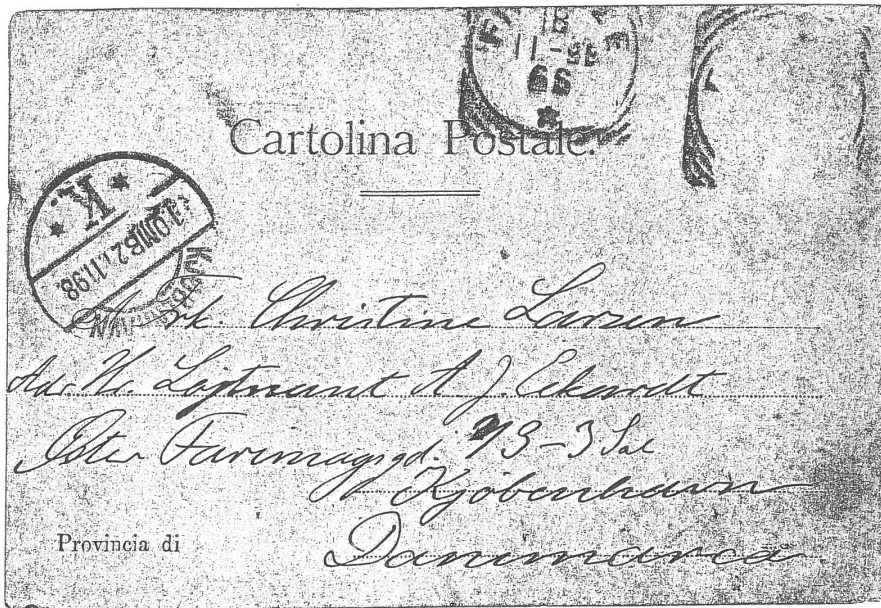 18
11-98
99
Cartolina Postale.
K.
1.OMB 2.11 98
KJØBENHAVN
Frk. Christine Larsen
Adr. Hr. Løjtnant A. J. Eckardt
Øster Farimagsgd. 73-3 Sal
Kjøbenhavn
Danimarca
Provincia di